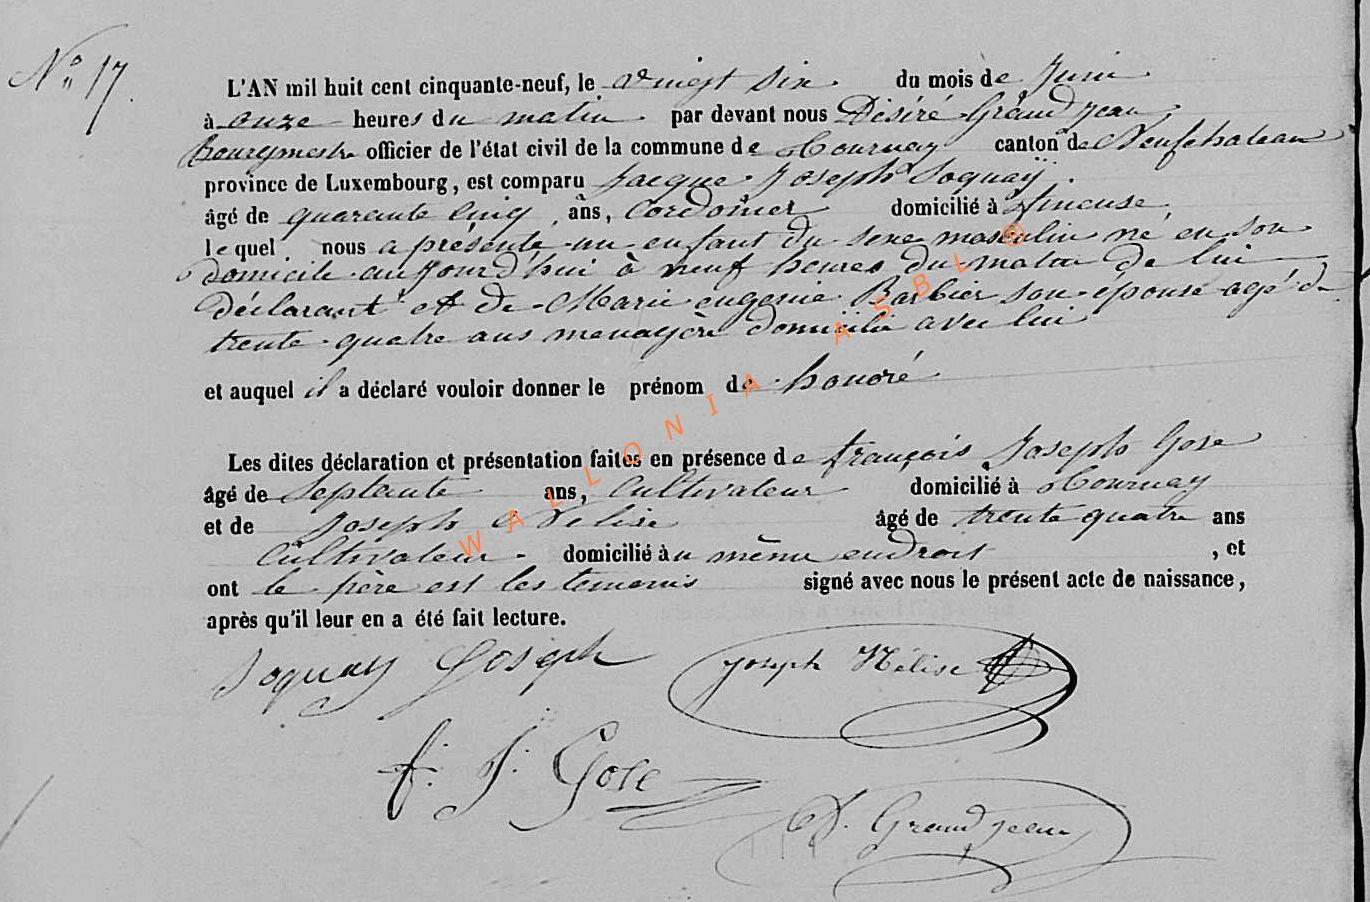 No 17.
L'AN mil huit cent cinquante-neuf, le vingt six du mois de Juin
à onze heures du matin par devant nous Désiré Grandjean,
bourgmestre officier de l'état civil de la commune de Tournay canton de Neufchateau
province de Luxembourg, est comparu Jacque Joseph Soquay.
âgé de quarante cinq ans, Cordonier domicilié à
le quel nous a présenté un enfant du sexe masculin né en son
domicile aujourd'hui à neuf heures du matin de lui
déclarant et de Marie eugenie Barbier son epouse agé de
trente quatre ans menagère domicilié avec lui
et auquel il a déclaré vouloir donner le prénom de honoré
Les dites déclaration et présentation faites en présence de françois Joseph Gose
âgé de Septante ans, Cultivateur domicilié à Tournay
et de Joseph Nélise âgé de trente quatre ans
Cultivateur domicilié au même endroit, et
ont le père est les temoins signé avec nous le présent acte de naissance,
après qu'il leur en a été fait lecture.
Soquay Joseph Joseph Nélise
f. J. Gose
D. Grandjean
WALLONIA ASBL ®